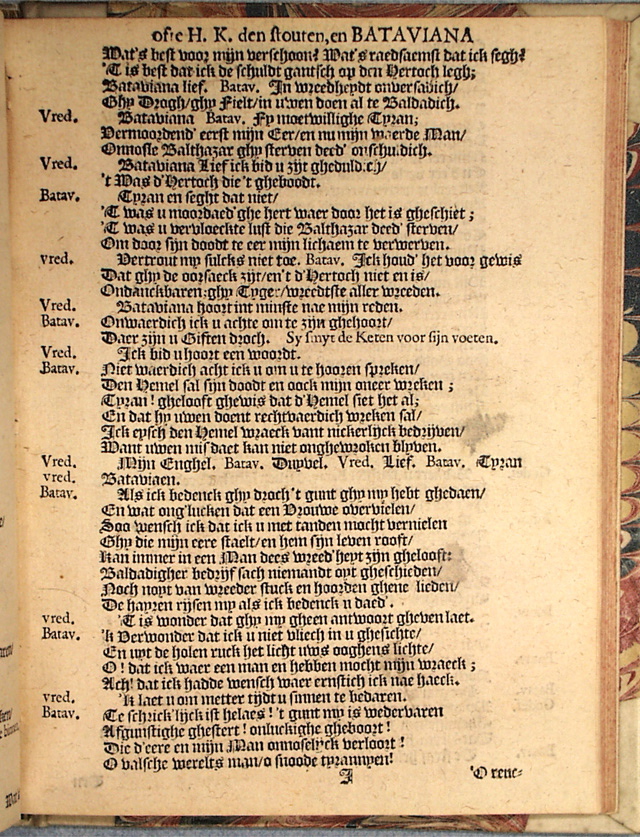 ofte H. K. den stouten, en BATAVIANA
Wat's best voor mijn verschoon? Wat's raedsaemst dat ick segh?
'T is best dat ick de schuldt gantsch op den Hertoch legh;
Bataviana lief. Batav. In wreedheydt onversadich/
Ghy Drogh/ghy Fielt/in uwen doen al te Baldadich.
Vred. Bataviana Batav. Fy moetwillighe Tyran;
Vermoordend' eerst mijn Eer/en nu mijn waerde Man/
Onnosle Balthazar ghy sterven deed' onschuldich.
Vred. Bataviana Lief ick bid u zijt gheduldich/
't Was d'Hertoch die 't gheboodt.
Batav. Tyran en seght dat niet/
'T was u moordaed'ghe hert waer door het is gheschiet;
'T was u vervloeckte lust die Balthazar deed' sterven/
Om door sijn doodt te eer mijn lichaem te verwerven.
vred. Vertrout my sulcks niet toe. Batav. Ick houd' het voor gewis
Dat ghy de oorsaeck zijt/en't d'Hertoch niet en is/
Ondanckbaren; ghy Tyger/wreedtste aller wreeden.
Vred. Bataviana hoort int minste nae mijn reden.
Batav. Onwaerdich ick u achte om te zijn ghehoort/
Daer zijn u Giften droch. Sy smyt de Keten voor sijn voeten.
Vred. Ick bid u hoort een woordt.
Batav. Niet waerdich acht ick u om u te hooren spreken/
Den Hemel sal sijn doodt en oock mijn oneer wreken;
Tyran! gheloost ghewis dat d'Hemel siet het al;
En dat hy uwen doent rechtvaerdich wreken sal/
Ick eysch den Hemel wraeck vant nickerlijck bedrijven/
Want uwen misdaet kan niet onghewroken blyven.
Vred. Mijn Enghel. Batav. Duyvel. Vred. Lief. Batav. Tyran
vred. Bataviaen.
Batav. Als ick bedenck ghy droch 't gunt ghy my hebt ghedaen/
En wat ong'lucken dat een Vrouwe overvielen/
Soo wensch ick dat ick u met tanden mocht vernielen
Ghy die mijn eere staelt/en hem sijn leven rooft/
Kan immer in een Man dees wreed'heyt zijn ghelooft:
Baldadigher bedrijf sach niemandt oyt gheschieden/
Noch noyt van wreeder stuck en hoorden ghene lieden/
De hayren rijsen my als ick bedenck u daed'.
vred. 'T is wonder dat ghy my gheen antwoort gheven laet.
Batav. 'k Verwonder dat ick u niet vliech in u ghesichte/
En uyt de holen ruck het licht uws ooghens lichte/
O! dat ick waer een man en hebben mocht mijn wraeck;
Ach! dat ick hadde wensch waer ernstich ick nae haeck.
vred. 'K laet u om metter tijdt u sinnen te bedaren.
Batav. Te schrick'lijck ist helaes! 't gunt my is wedervaren
Afgunstighe ghestert! onluckighe gheboort!
Die d'eere en mijn Man onnoselyck verloort!
O valsche werelts man/o snoode tyrannyen!
I 'O rene-